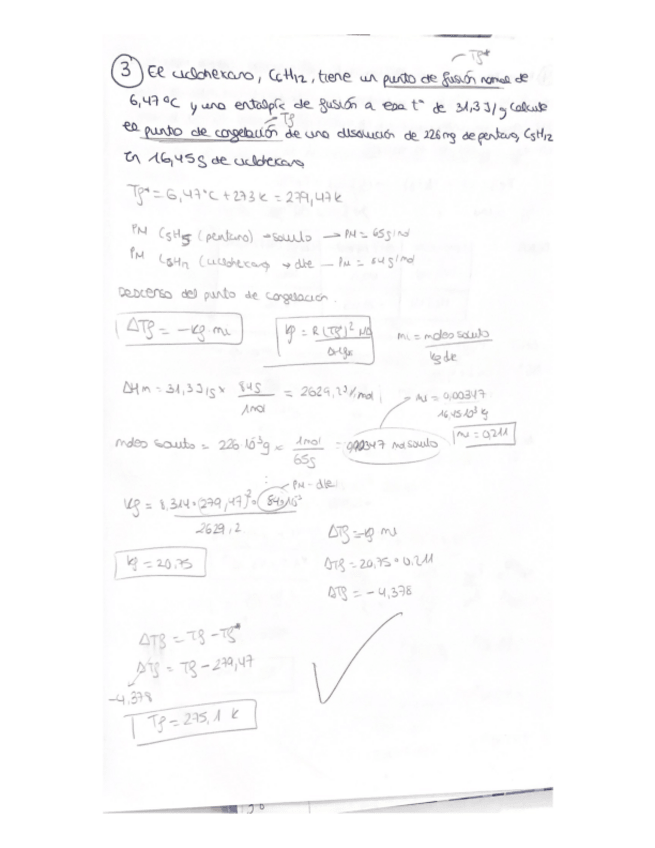 Tf*
③ El ciclohexano, C6H12, tiene un punto de fusión normal de
6,47ºC y una entalpía de fusión a esa tª de 31,3 J/g calcule
Tf
el punto de congelación de una disolución de 226 mg de pentano, C5H12
en 16,45 g de ciclohexano
Tf* = 6,47ºC + 273 K = 279,47 K
PM C5H5 (pentano) → soluto → PM = 65 g/mol
PM C6H12 (ciclohexano → dte — PM = 84 g/mol
Descenso del punto de congelación.
ΔTf = -Kf · m
Kf = R (Tf*)²
m = moles soluto / kg dte
ΔHm = 31,3 J/g × 84g / 1mol = 2629,2 J/mol
m = 0,00347 / 16,45·10³ g
moles soluto = 226·10⁻³ g × 1mol / 65g = 0,00347 mol soluto
m = 0,211
PM-dte
Kf = 8,314 · (279,47)² · 84·10⁻³ / 2629,2
ΔTf = -Kf m
Kf = 20,75
ΔTf = 20,75 · 0.211
ΔTf = -4,378
ΔTf = Tf - Tf*
ΔTf = Tf - 279,47
-4,378
Tf = 275,1 K